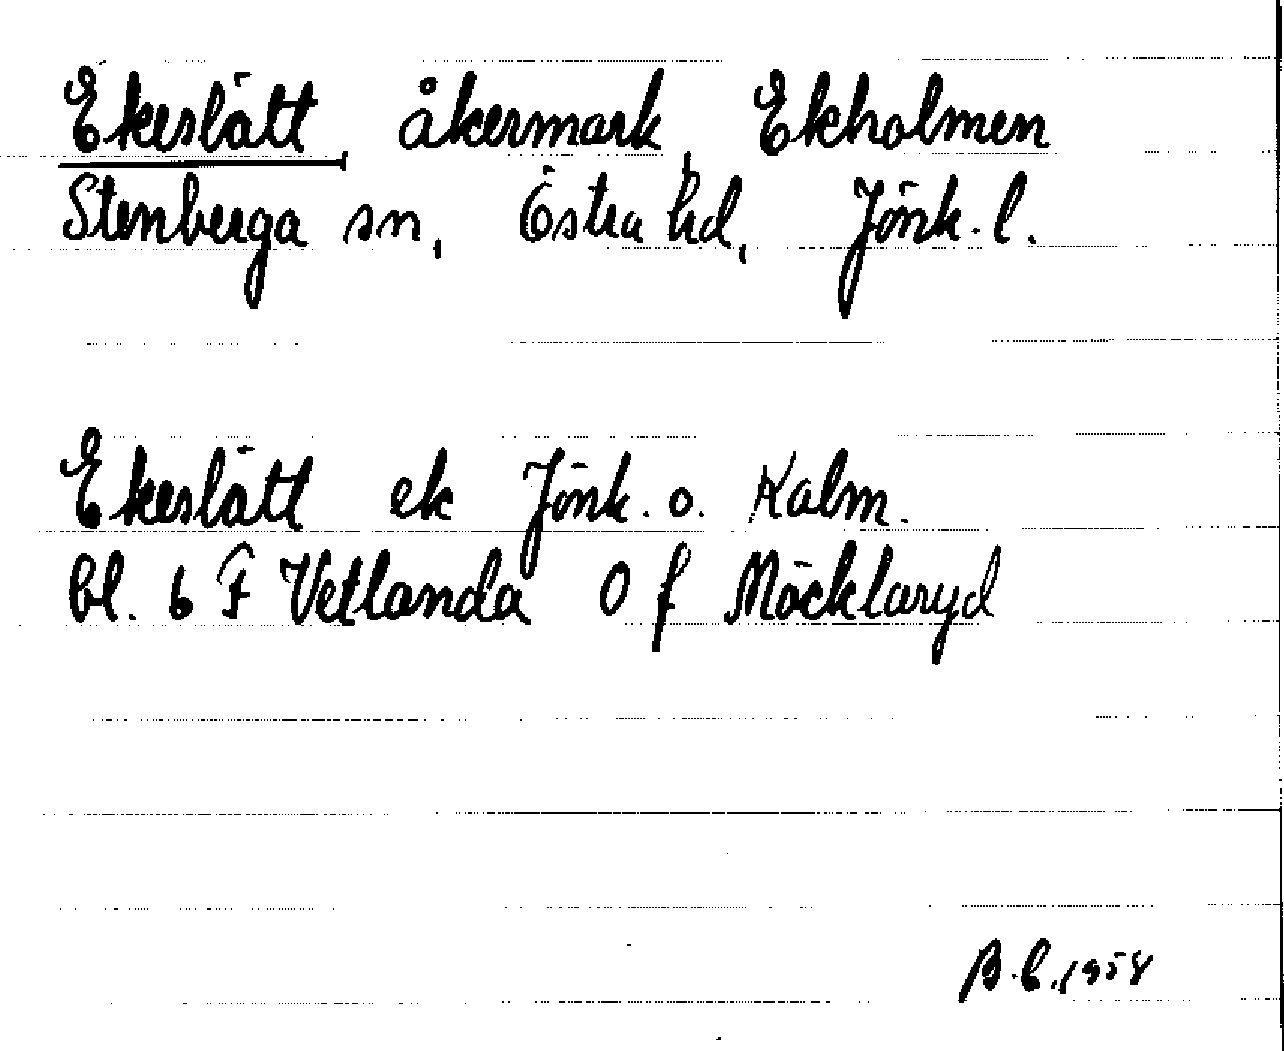 Ekeslätt, åkermark, Ekholmen
Stenberga sn, Östra hd, Jönk. l.
Ekeslätt ek Jönk. o. Kalm.
bl. 6 F Vetlanda 0 f Möcklaryd
B.C. 1958